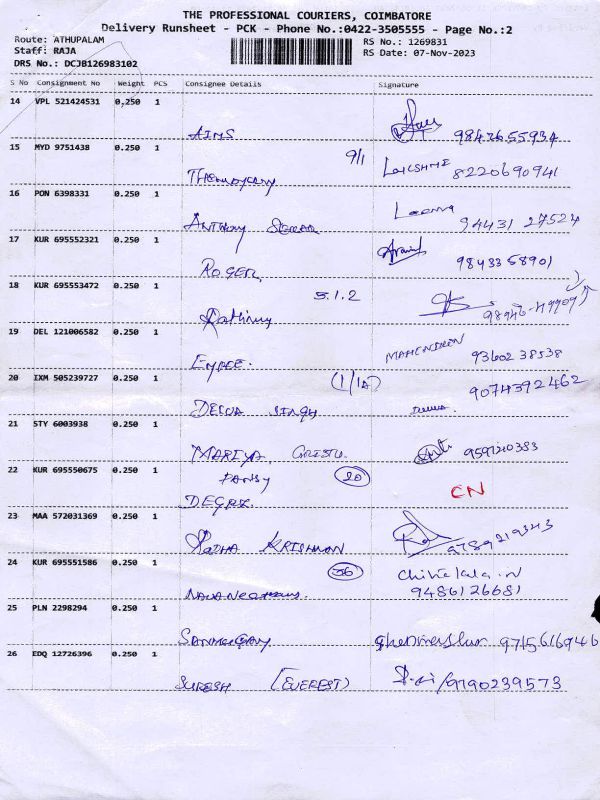 THE PROFESSIONAL COURIERS, COIMBATORE
Delivery Runsheet - PCK - Phone No.:0422-3505555 - Page No.:2
Route: ATHUPALAM
Staff: RAJA
DRS No.: DCJB126983102
RS No.: 1269831
RS Date: 07-Nov-2023
S No Consignment No Weight PCS Consignee Details Signature
14 VPL 521424531 0.250 1
AIMS 9847655934
15 MYD 9751438 0.250 1
9/1 LAKSHMI 8220690941
16 PON 6398331 0.250 1
ANTHONY Leema 94431 27524
17 KUR 695552321 0.250 1
ROGER 98433 58901
18 KUR 695553472 0.250 1
5.1.2
19 DEL 121006582 0.250 1
93602 38538
20 IXM 505239727 0.250 1
(1/1A) 9074392462
DEEVA SINGH
21 STY 6003938 0.250 1
MARIYA
22 KUR 695550675 0.250 1
PANSY 20 CN
23 MAA 572031369 0.250 1
RADHA KRISHNAN 9789219343
24 KUR 695551586 0.250 1
36
9486126681
25 PLN 2298294 0.250 1
9715616946
26 EDQ 12726396 0.250 1
SURESH (EVEREST) 9790239573